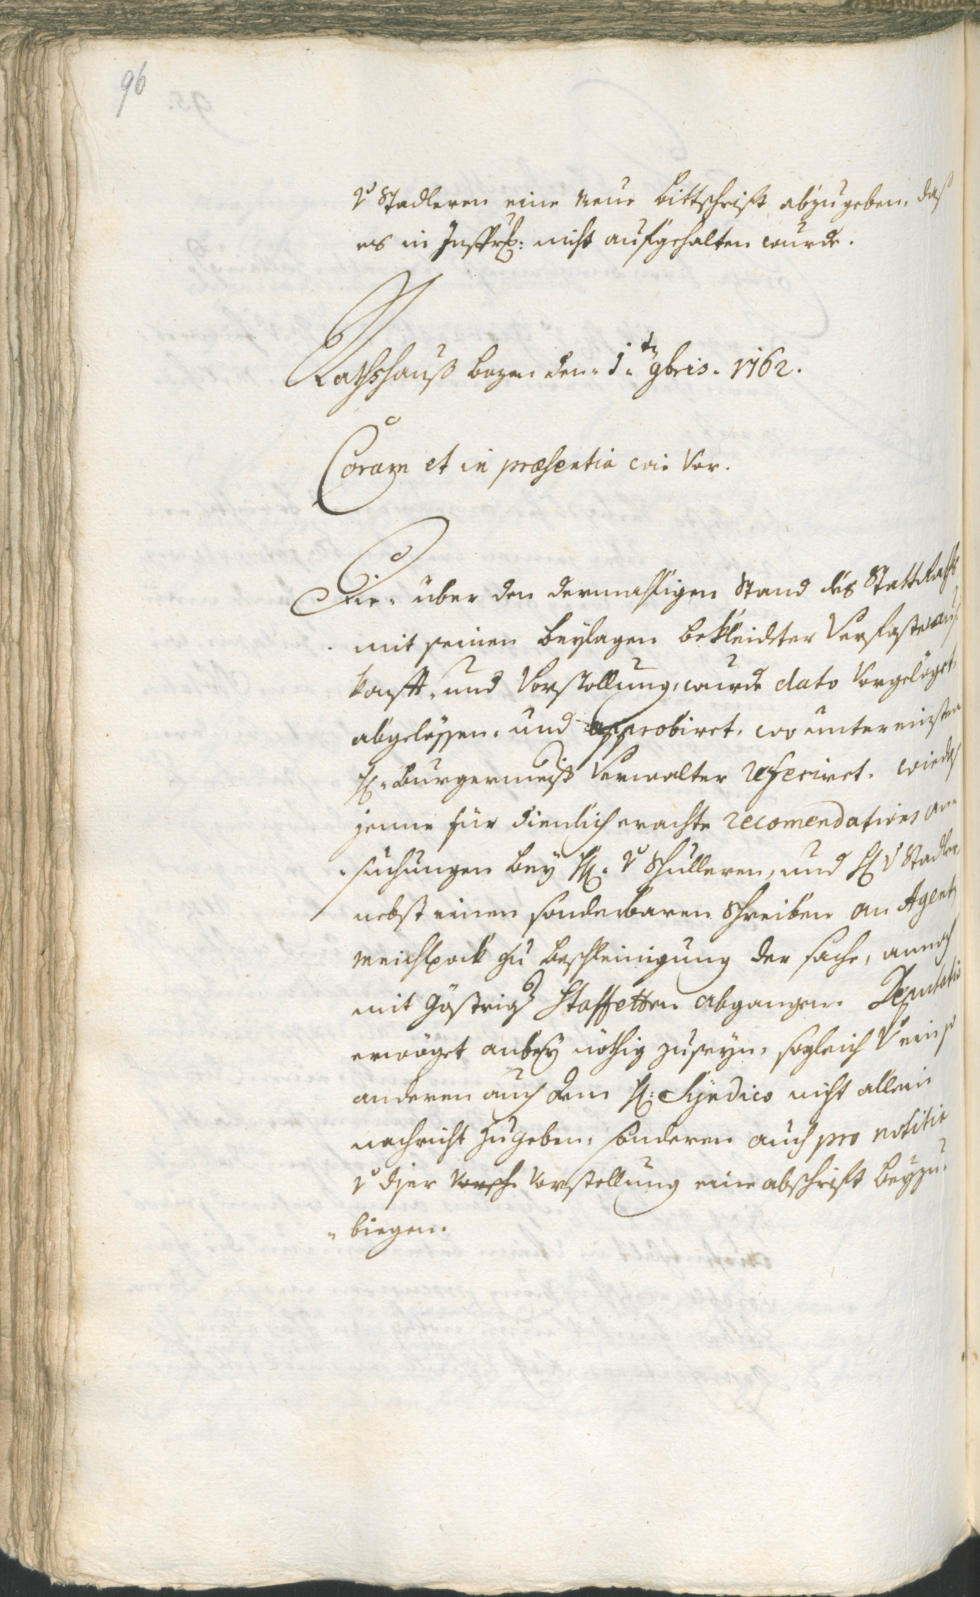 96
v Stadleren eine neue bittschrift abzugeben, daß
es in Insprg: nicht aufgehalten wurde.
Rathshauß bozen den 1.ten 9bris. 1762.
Coram et in præsentia wie vor.
Die über den dermahligen Stand des Statt Raths
mit seinen beylagen bekleidter verfaste aus¬
kunfft, und Vorstellung, wurde dato vorgelegt,
abgelessen, und approbiret, wo unter einsten
H. burgermeist Verwalter referiret, wie das
jenne für dienlich erachte recomendations an¬
suchungen bey H. v Schulleren, und H v Stadlern
nebst einen sonderbaren schreiben an Agent
Weichlpock zu beschleinigung der sache, annoch
mit gestrigr Staffetten abgangen. Deputatio
erwöget anbey nöthig zuseyn, sogleich v ein so
anderen auch dem H: Syndico nicht allein
nachricht zugeben, sonderen auch pro notitia
v diser Vorstellung eine abschrift beyzu¬
biegen.